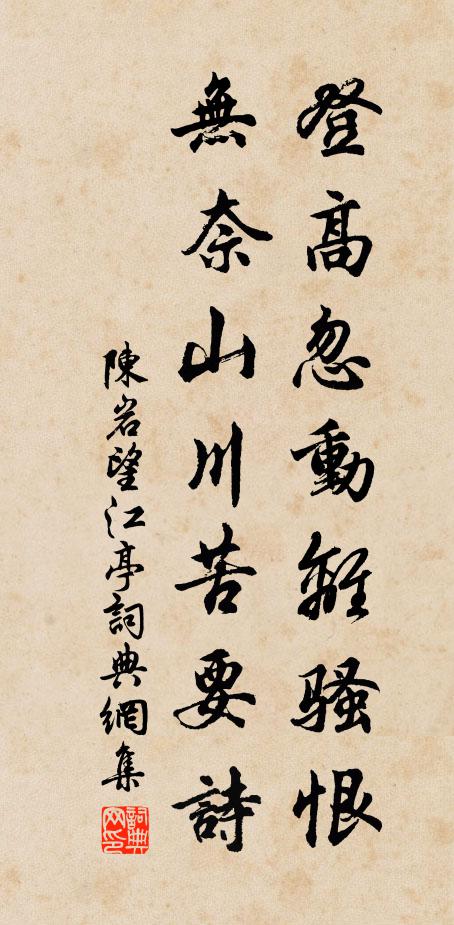 登高忽動離騷恨
無奈山川苦要詩
陳岩望江亭詞典網集
詞典網印